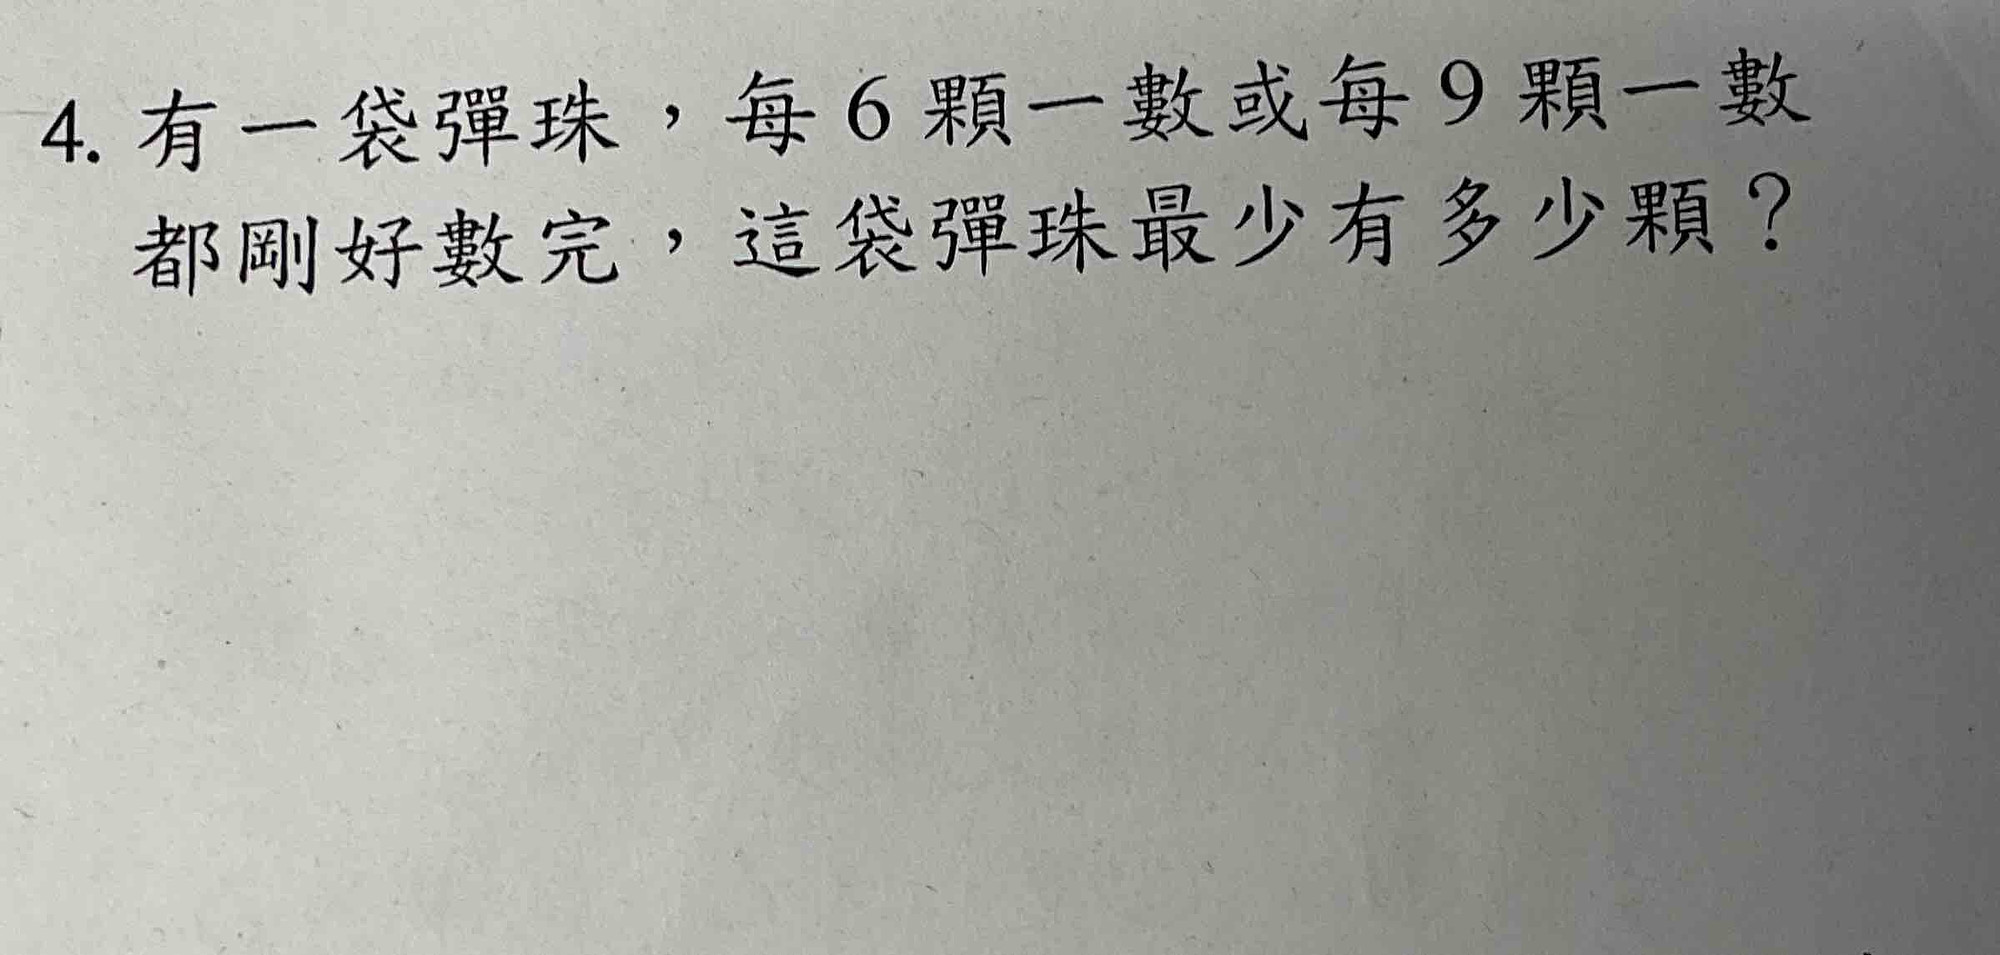 4. 有一袋彈珠，每6顆一數或每9顆一數
都剛好數完，這袋彈珠最少有多少顆？